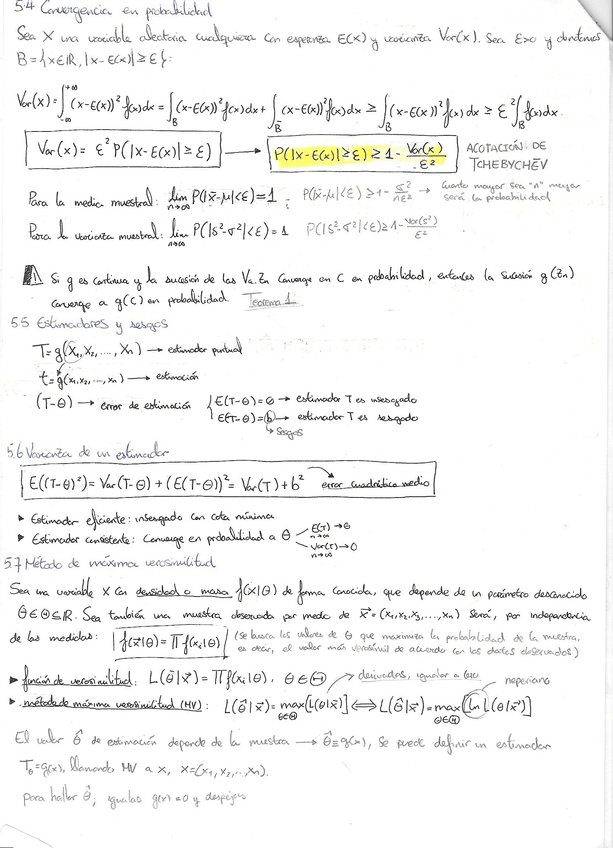 5.4 Convergencia en probabilidad
Sea X una variable aleatoria cualquiera con esperanza E(x) y varianza Var(x). Sea ε>0 y donotamos
B = {x∈ℝ, |x - E(x)| ≥ ε}:
Var(x) = ∫_{-∞}^{+∞} (x-E(x))² f(x)dx = ∫_B (x-E(x))² f(x)dx + ∫_B̄ (x-E(x))² f(x)dx ≥ ∫_B (x-E(x))² f(x)dx ≥ ε² ∫_B f(x)dx.
Var(x) = ε² P(|x-E(x)| ≥ ε) → P(|x-E(x)| ≥ ε) ≥ 1 - Var(x)/ε² ACOTACIÓN DE
TCHEBYCHĒV
Para la media muestral: lim_{n→∞} P(|x̄-μ|<ε) = 1 ; P(|x̄-μ|<ε) ≥ 1 - σ²/nε² → Cuanto mayor sea "n" mayor
será la probabilidad
Para la varianza muestral: lim_{n→∞} P(|s²-σ²|<ε) = 1 P(|s²-σ²|<ε) ≥ 1 - Var(s²)/ε²
⚠ Si g es continua y la sucesión de las Va. Zn converge en C en probabilidad, entonces la sucesión g(Zn)
converge a g(C) en probabilidad. Teorema 1
5.5 Estimadores y sesgos
T = g(X₁, X₂, ..., Xn) → estimador puntual
t = g(x₁, x₂, ..., xn) → estimación
(T-θ) → error de estimación { E(T-θ) = 0 → estimador T es insesgado
E(T-θ) = b → estimador T es sesgado
↳ Sesgos
5.6 Varianza de un estimador
E((T-θ)²) = Var(T-θ) + (E(T-θ))² = Var(T) + b² error cuadrático medio
▸ Estimador eficiente: insesgado con cota mínima
▸ Estimador consistente: Converge en probabilidad a θ < E(T) → θ
n→∞
Var(T) → 0
n→∞
5.7 Método de máxima verosimilitud
Sea una variable X con densidad o masa f(x|θ) de forma conocida, que depende de un parámetro desconocido
θ∈Θ⊆ℝ. Sea también una muestra observada por medio de x⃗ = (x₁, x₂, x₃, ..., xn) Será, por independencia
de las medidas: f(x⃗|θ) = ∏ f(xᵢ|θ) (se busca los valores de θ que maximiza la probabilidad de la muestra,
es decir, el valor más verosímil de acuerdo con los datos observados)
▸ función de verosimilitud: L(θ|x⃗) = ∏ f(xᵢ|θ), θ∈Θ → derivadas, igualar a cero neperiano
▸ método de máxima verosimilitud (MV): L(θ̂|x⃗) = max_{θ∈Θ} [L(θ|x⃗)] ⟺ L(θ̂|x⃗) = max_{θ∈Θ} [ln L(θ|x⃗)]
El valor θ̂ de estimación depende de la muestra → θ̂ = g(x), se puede definir un estimador
T_θ = g(x), llamando MV a x, x = (x₁, x₂, ..., xn).
para hallar θ̂; igualas g(x) = 0 y despejas